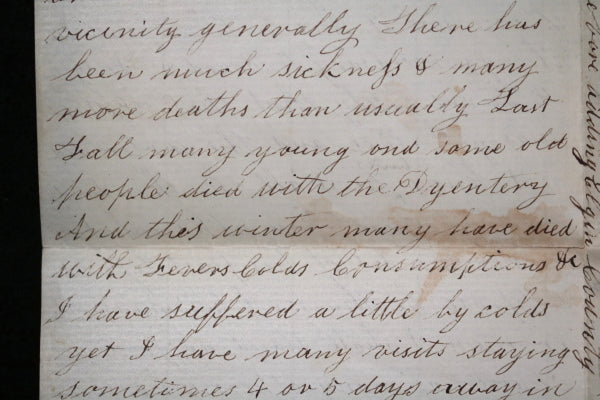 vicinity generally There has
been much sickness & many
more deaths than usually Last
Fall many young and some old
people died with the Dyentery
And this winter many have died
with Fevers Colds Consumptions &c
I have suffered a little by colds
yet I have many visits staying
sometimes 4 or 5 days away in
adding Elgin County